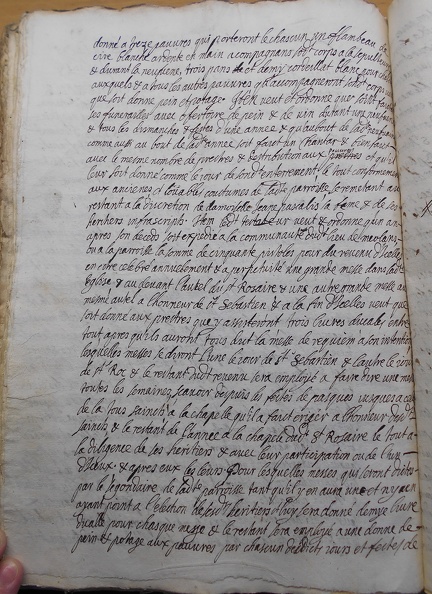 donné a treze pauvres qui porteront le chascun un flambeau de
cire blanche ardente en main acompagnans sond corps a la sepulture
& durant la neufvene, trois pans de et demy cordeillat blanc pour chacun
auxquels & a tous les autres pauvres qu'acompagneront sond corps
que soit donné pein & potage. Item veut et ordonne que soit fait
ses funerailles avec offertoire de pein & de vin durant une neufvene
& tous les dismanches & festes d'une année & qu'au bout de lad neufvene
comme aussi au bout de lad année soit faict un chantar & bien faict
avec le mesme nombre de prestres & distribution aux pauvres et qu'il
leur soit donné comme le jour de sond enterrement le tout conformement
aux anciennes & louables coustumes de lad parroisse remetant au
restant a la discretion de damoyselle sa fame & de ses
heritiers infrascripts. Item led testateur veut & ordonne qu'un an
apres son deces soit expedié a la communauté dud lieu de
ou a la parroisse la somme de cinquante pistoles pour du revenu d'icelles
en estre celebré annuelement & a perpetuité une grande messe dans lad
esglise & au devant l'autel du St Rosaire & une autre grande messe au
mesme autel a l'honneur de St Sebastien & a la fin d'icelles veut que
soit donné aux prestres que y assisteront trois livres ducales entre
tout apres qu'ils auront tous dit la messe de requiem a son intention
lesquelles messes se diront l'une le jour de St Sebastien & l'autre le jour
de St Roc & le restant dud revenu sera employé a faire dire une messe
toutes les semaines scavoir despuis les festes de pasques jusques a celle
de la tous saincts a la chapelle qu'il a faict eriger a l'honneur desd
saincts & le restant de l'année a la chapele dud St Rosaire le tout a
la diligence de ses heritiers & avec leur participation ou de l'un
d'iceux & apres eux les leurs. Pour lesquelles messes qui seront dictes
par le secondaire de lad parroisse tant qu'il y en aura un et n'y en
ayant point a l'election desd heritiers luy sera donné demye livre
ducalle pour chasque messe & le restant sera employé a une donne de
pein & potage aux pauvres par chascun desdicts jours et festes de